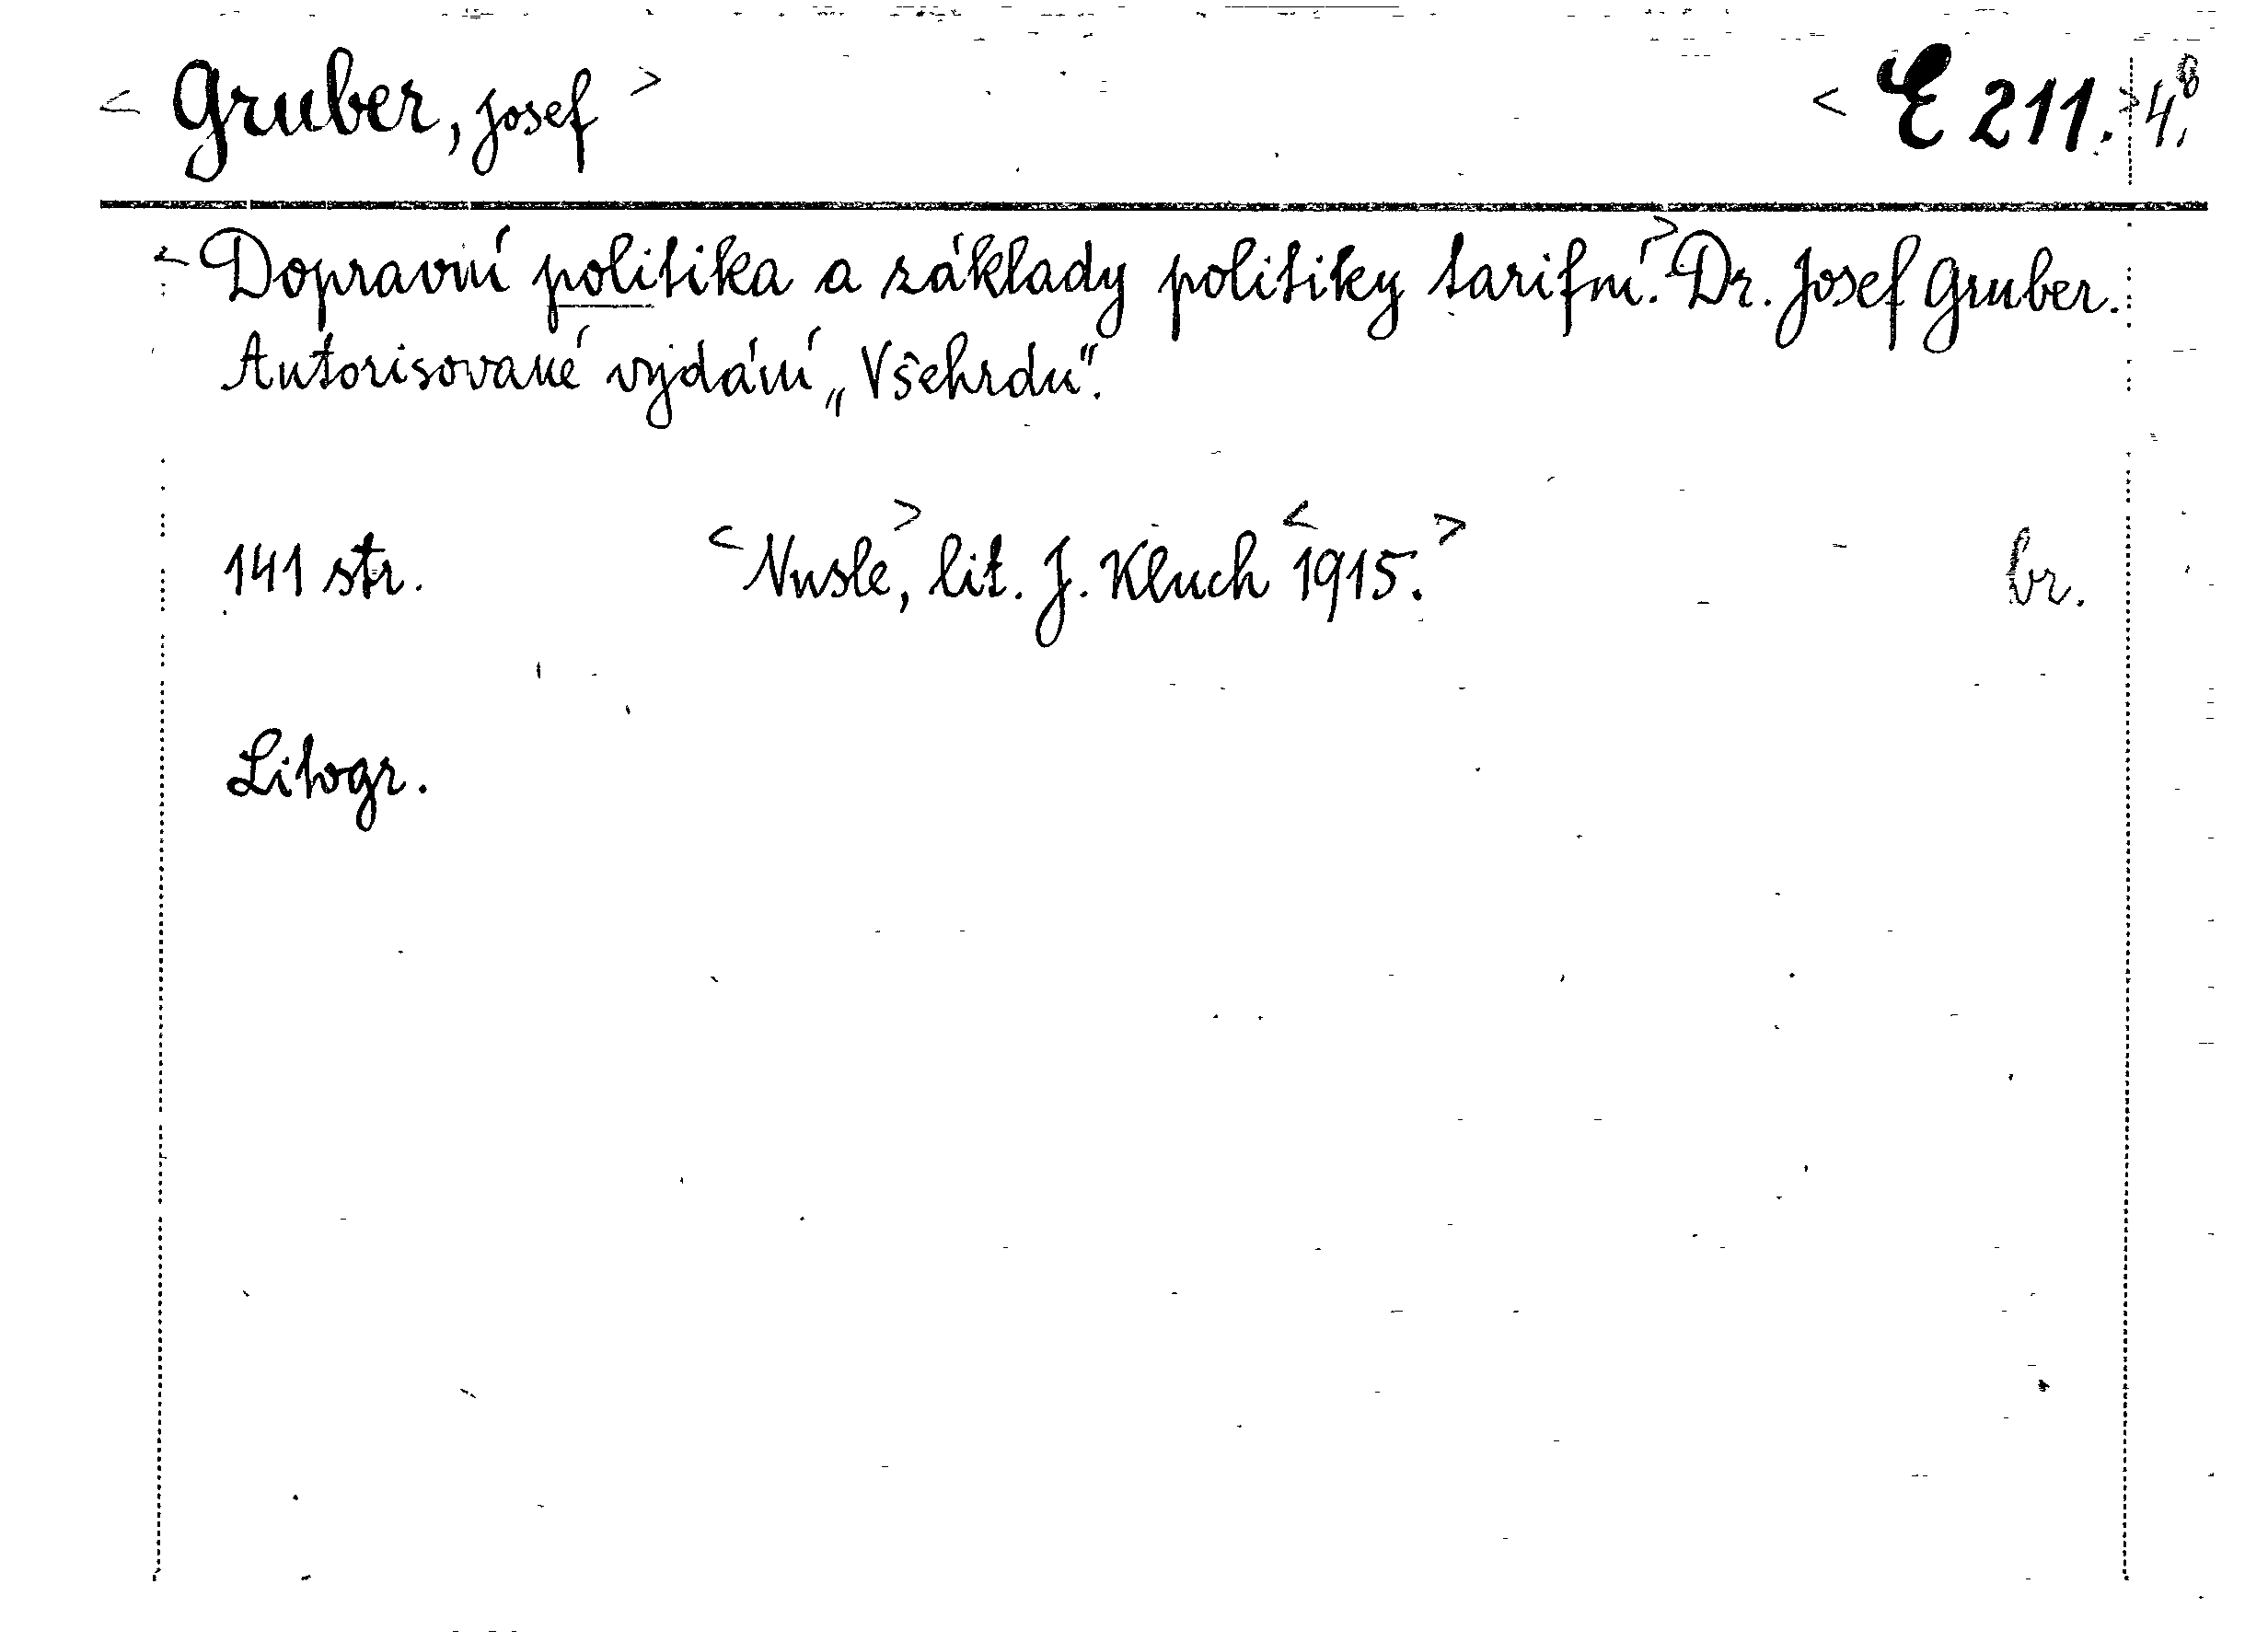 < Gruber, Josef > < E 211. > 4.°
< Dopravní politika a základy politiky tarifní. > Dr. Josef Gruber.
Autorisované vydání „Všehrdu".
141 str. < Nusle, > lit. J. Kluch < 1915. > br.
Litogr.